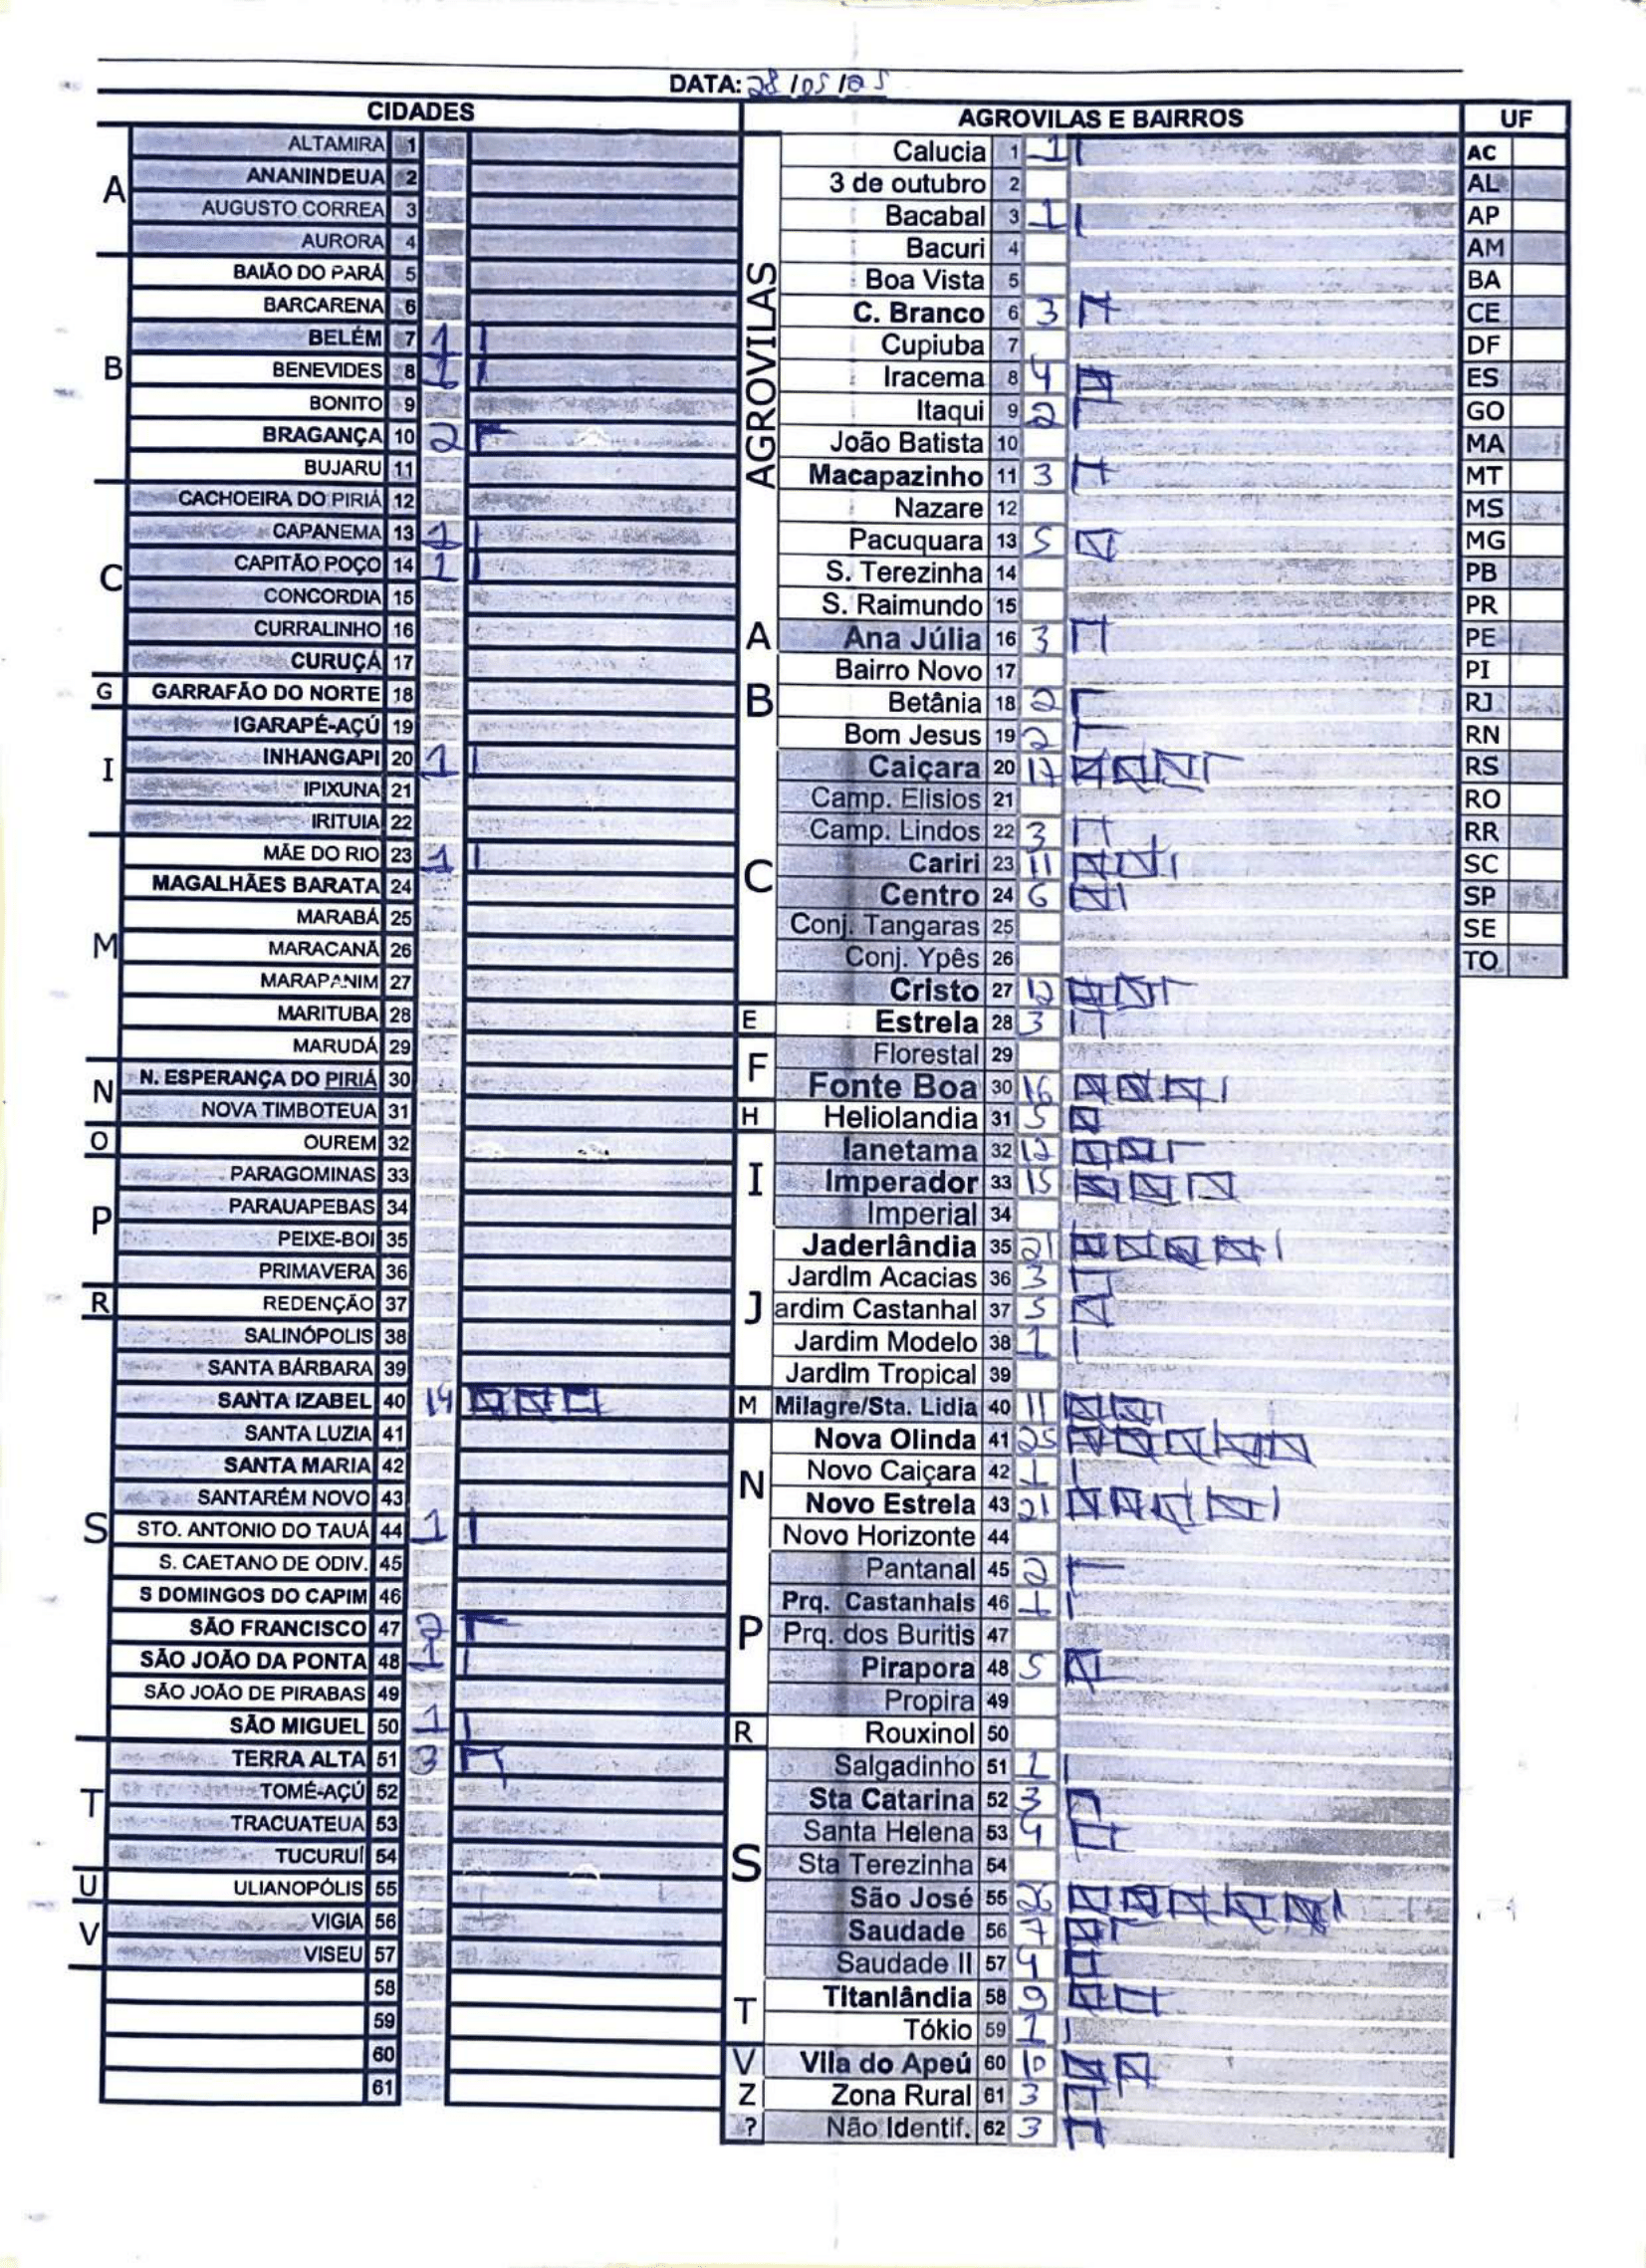 DATA: 28/05/25
CIDADES
A
ALTAMIRA 1
ANANINDEUA 2
AUGUSTO CORREA 3
AURORA 4
B
BAIÃO DO PARÁ 5
BARCARENA 6
BELÉM 7 1
BENEVIDES 8 1
BONITO 9
BRAGANÇA 10 2
BUJARU 11
C
CACHOEIRA DO PIRIÁ 12
CAPANEMA 13 1
CAPITÃO POÇO 14 1
CONCORDIA 15
CURRALINHO 16
CURUÇÁ 17
G
GARRAFÃO DO NORTE 18
I
IGARAPÉ-AÇÚ 19
INHANGAPI 20 1
IPIXUNA 21
IRITUIA 22
M
MÃE DO RIO 23 1
MAGALHÃES BARATA 24
MARABÁ 25
MARACANÃ 26
MARAPANIM 27
MARITUBA 28
MARUDÁ 29
N
N. ESPERANÇA DO PIRIÁ 30
NOVA TIMBOTEUA 31
O
OUREM 32
P
PARAGOMINAS 33
PARAUAPEBAS 34
PEIXE-BOI 35
PRIMAVERA 36
R
REDENÇÃO 37
S
SALINÓPOLIS 38
SANTA BÁRBARA 39
SANTA IZABEL 40 14
SANTA LUZIA 41
SANTA MARIA 42
SANTARÉM NOVO 43
STO. ANTONIO DO TAUÁ 44 1
S. CAETANO DE ODIV. 45
S DOMINGOS DO CAPIM 46
SÃO FRANCISCO 47 2
SÃO JOÃO DA PONTA 48 1
SÃO JOÃO DE PIRABAS 49
SÃO MIGUEL 50 1
T
TERRA ALTA 51 3
TOMÉ-AÇÚ 52
TRACUATEUA 53
TUCURUÍ 54
U
ULIANOPÓLIS 55
V
VIGIA 56
VISEU 57
58
59
60
61
AGROVILAS E BAIRROS
AGROVILAS
Calucia 1 1
3 de outubro 2
Bacabal 3 1
Bacuri 4
Boa Vista 5
C. Branco 6 3
Cupiuba 7
Iracema 8 4
Itaqui 9 2
João Batista 10
Macapazinho 11 3
Nazare 12
Pacuquara 13 5
S. Terezinha 14
S. Raimundo 15
A
Ana Júlia 16 3
Bairro Novo 17
B
Betânia 18 2
Bom Jesus 19 2
C
Caiçara 20 17
Camp. Elisios 21
Camp. Lindos 22 3
Cariri 23 11
Centro 24 6
Conj. Tangaras 25
Conj. Ypês 26
Cristo 27 12
E
Estrela 28 3
F
Florestal 29
Fonte Boa 30 16
H
Heliolandia 31 5
I
Ianetama 32 12
Imperador 33 15
Imperial 34
J
Jaderlândia 35 21
Jardim Acacias 36 3
ardim Castanhal 37 5
Jardim Modelo 38 1
Jardim Tropical 39
M
Milagre/Sta. Lidia 40 11
N
Nova Olinda 41 25
Novo Caiçara 42 1
Novo Estrela 43 21
Novo Horizonte 44
P
Pantanal 45 2
Prq. Castanhais 46 1
Prq. dos Buritis 47
Pirapora 48 5
Propira 49
R
Rouxinol 50
S
Salgadinho 51 1
Sta Catarina 52 3
Santa Helena 53 4
Sta Terezinha 54
São José 55 26
Saudade 56 7
Saudade II 57 4
T
Titanlândia 58 9
Tókio 59 1
V
Vila do Apeú 60 10
Z
Zona Rural 61 3
?
Não Identif. 62 3
UF
AC
AL
AP
AM
BA
CE
DF
ES
GO
MA
MT
MS
MG
PB
PR
PE
PI
RJ
RN
RS
RO
RR
SC
SP
SE
TO